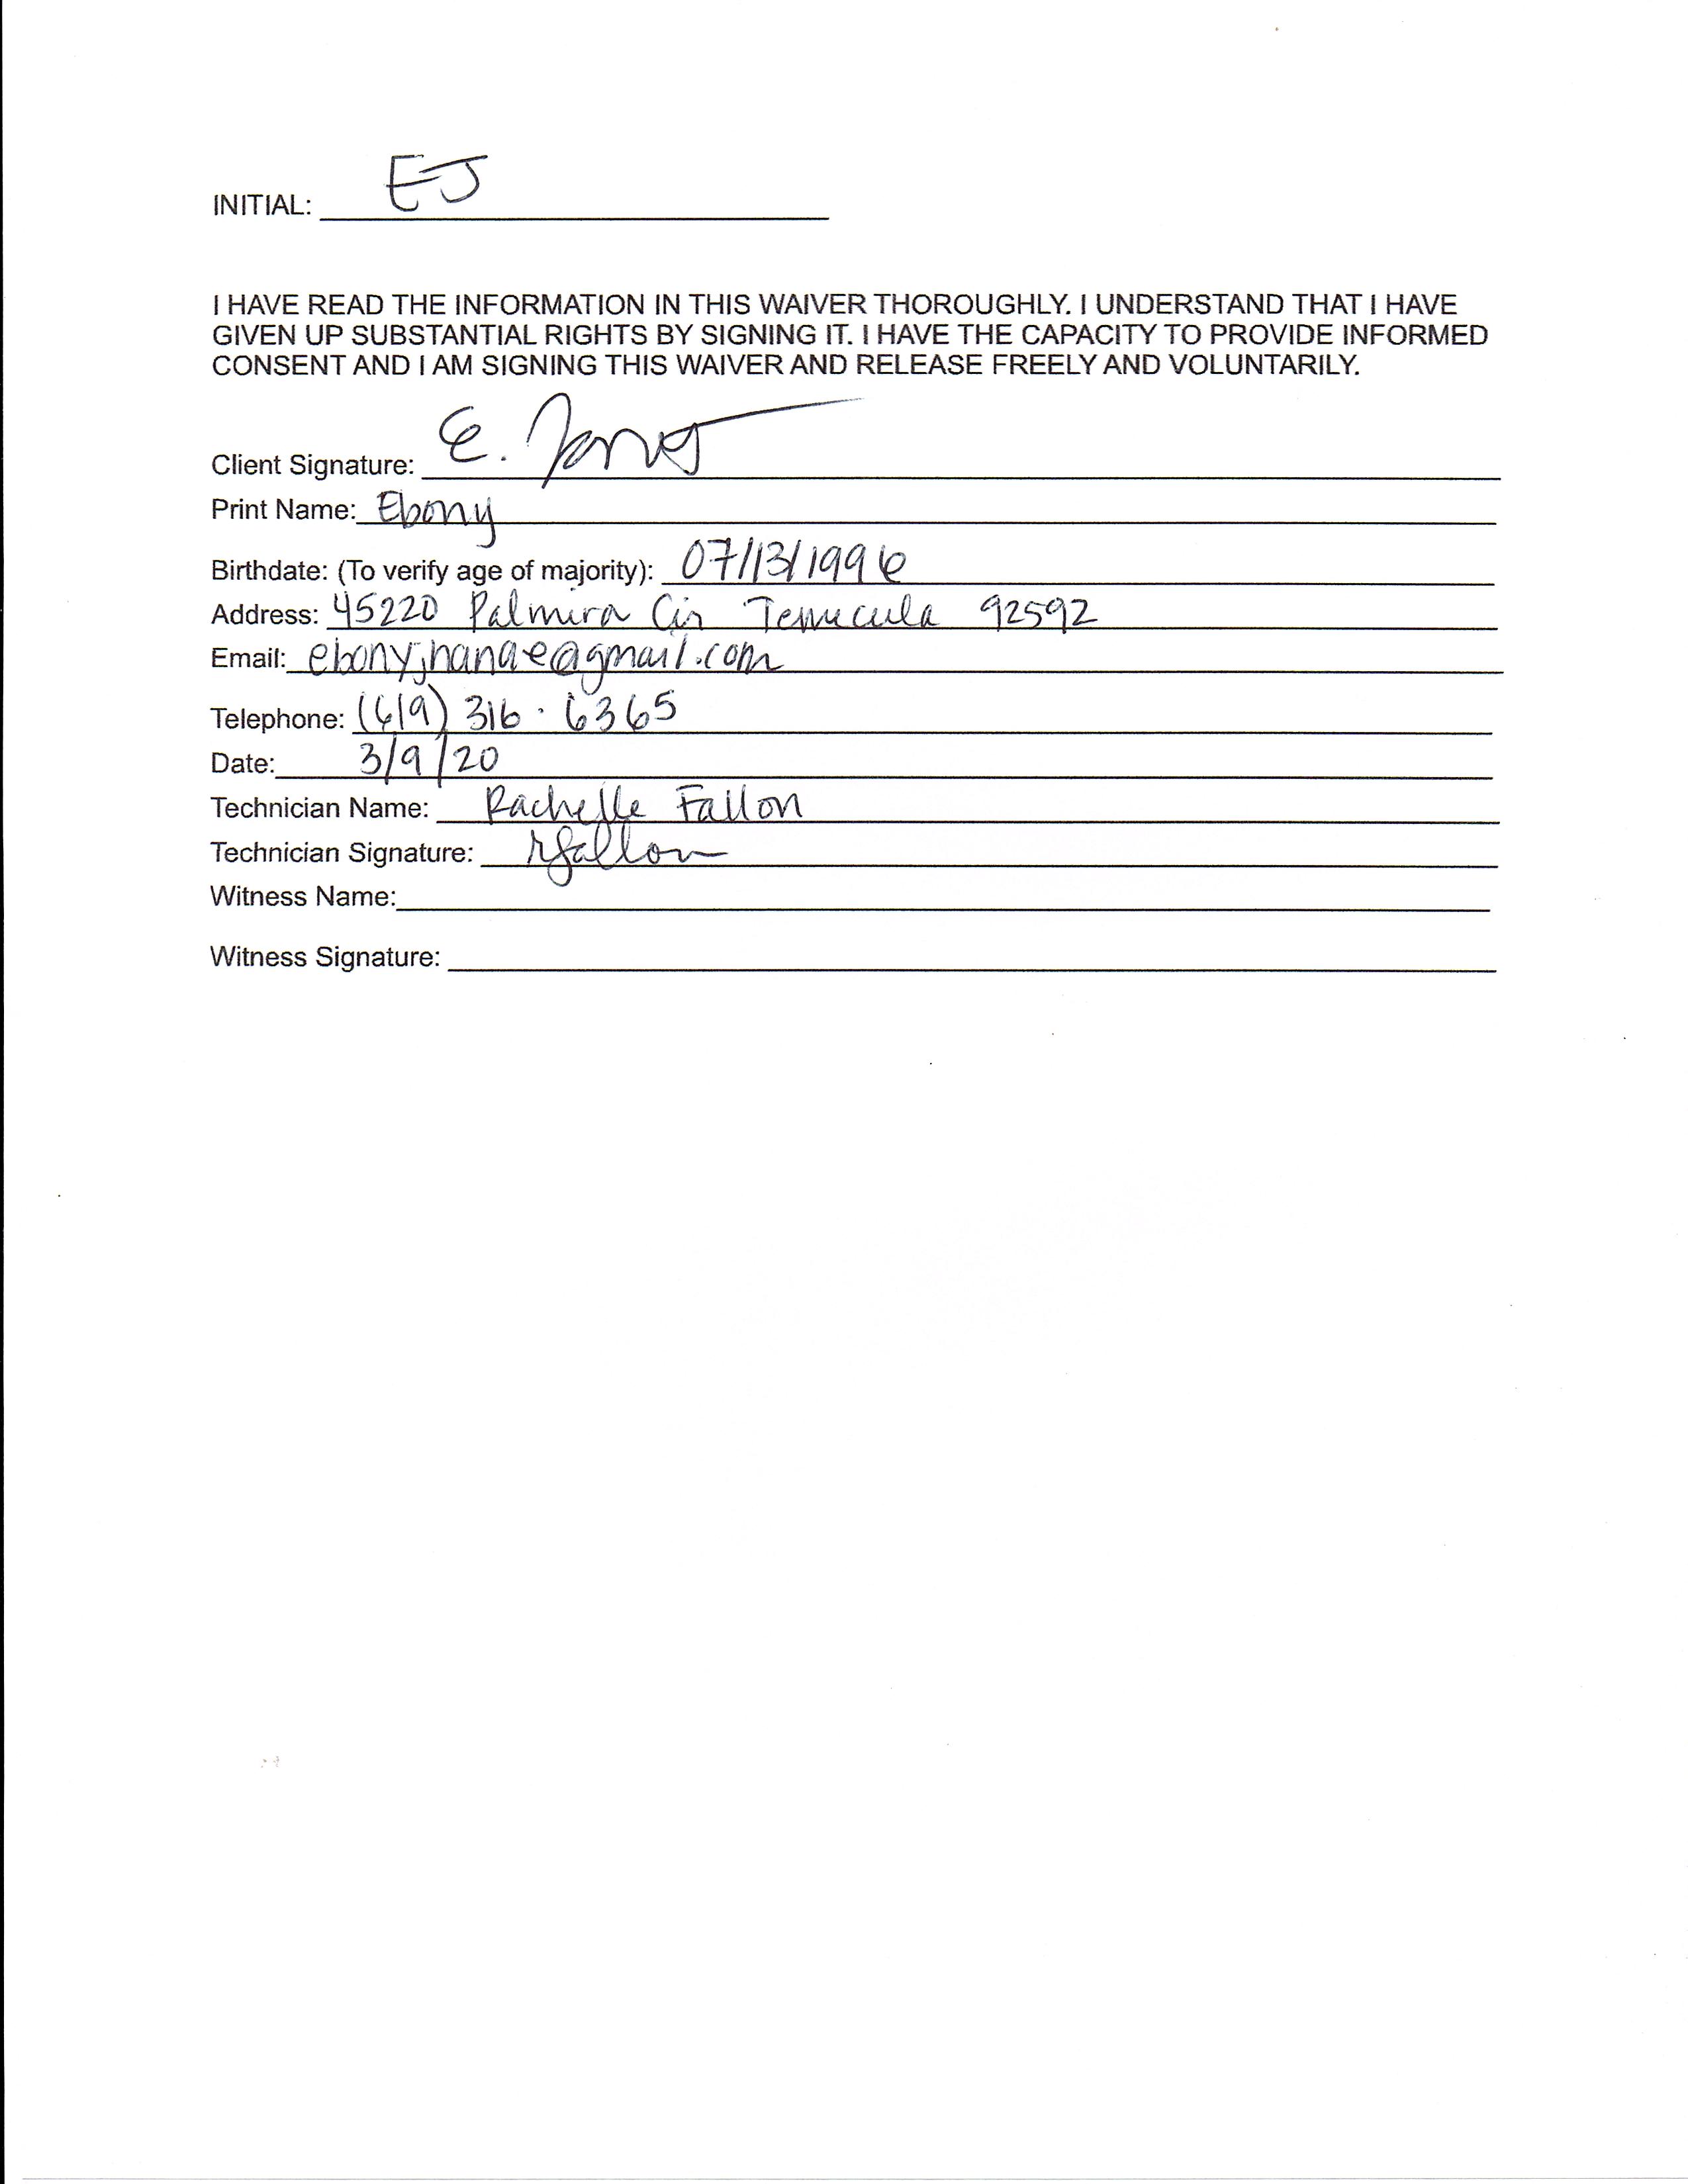 INITIAL: EJ
I HAVE READ THE INFORMATION IN THIS WAIVER THOROUGHLY. I UNDERSTAND THAT I HAVE
GIVEN UP SUBSTANTIAL RIGHTS BY SIGNING IT. I HAVE THE CAPACITY TO PROVIDE INFORMED
CONSENT AND I AM SIGNING THIS WAIVER AND RELEASE FREELY AND VOLUNTARILY.
Client Signature: E.
Print Name: Ebony
Birthdate: (To verify age of majority): 07/13/1996
Address: 45220 Palmira Cir Temecula 92592
Email: ebonyjhanae@gmail.com
Telephone: (619) 316 · 6365
Date: 3/9/20
Technician Name: Rachelle Fallon
Technician Signature: rfallon
Witness Name:
Witness Signature: